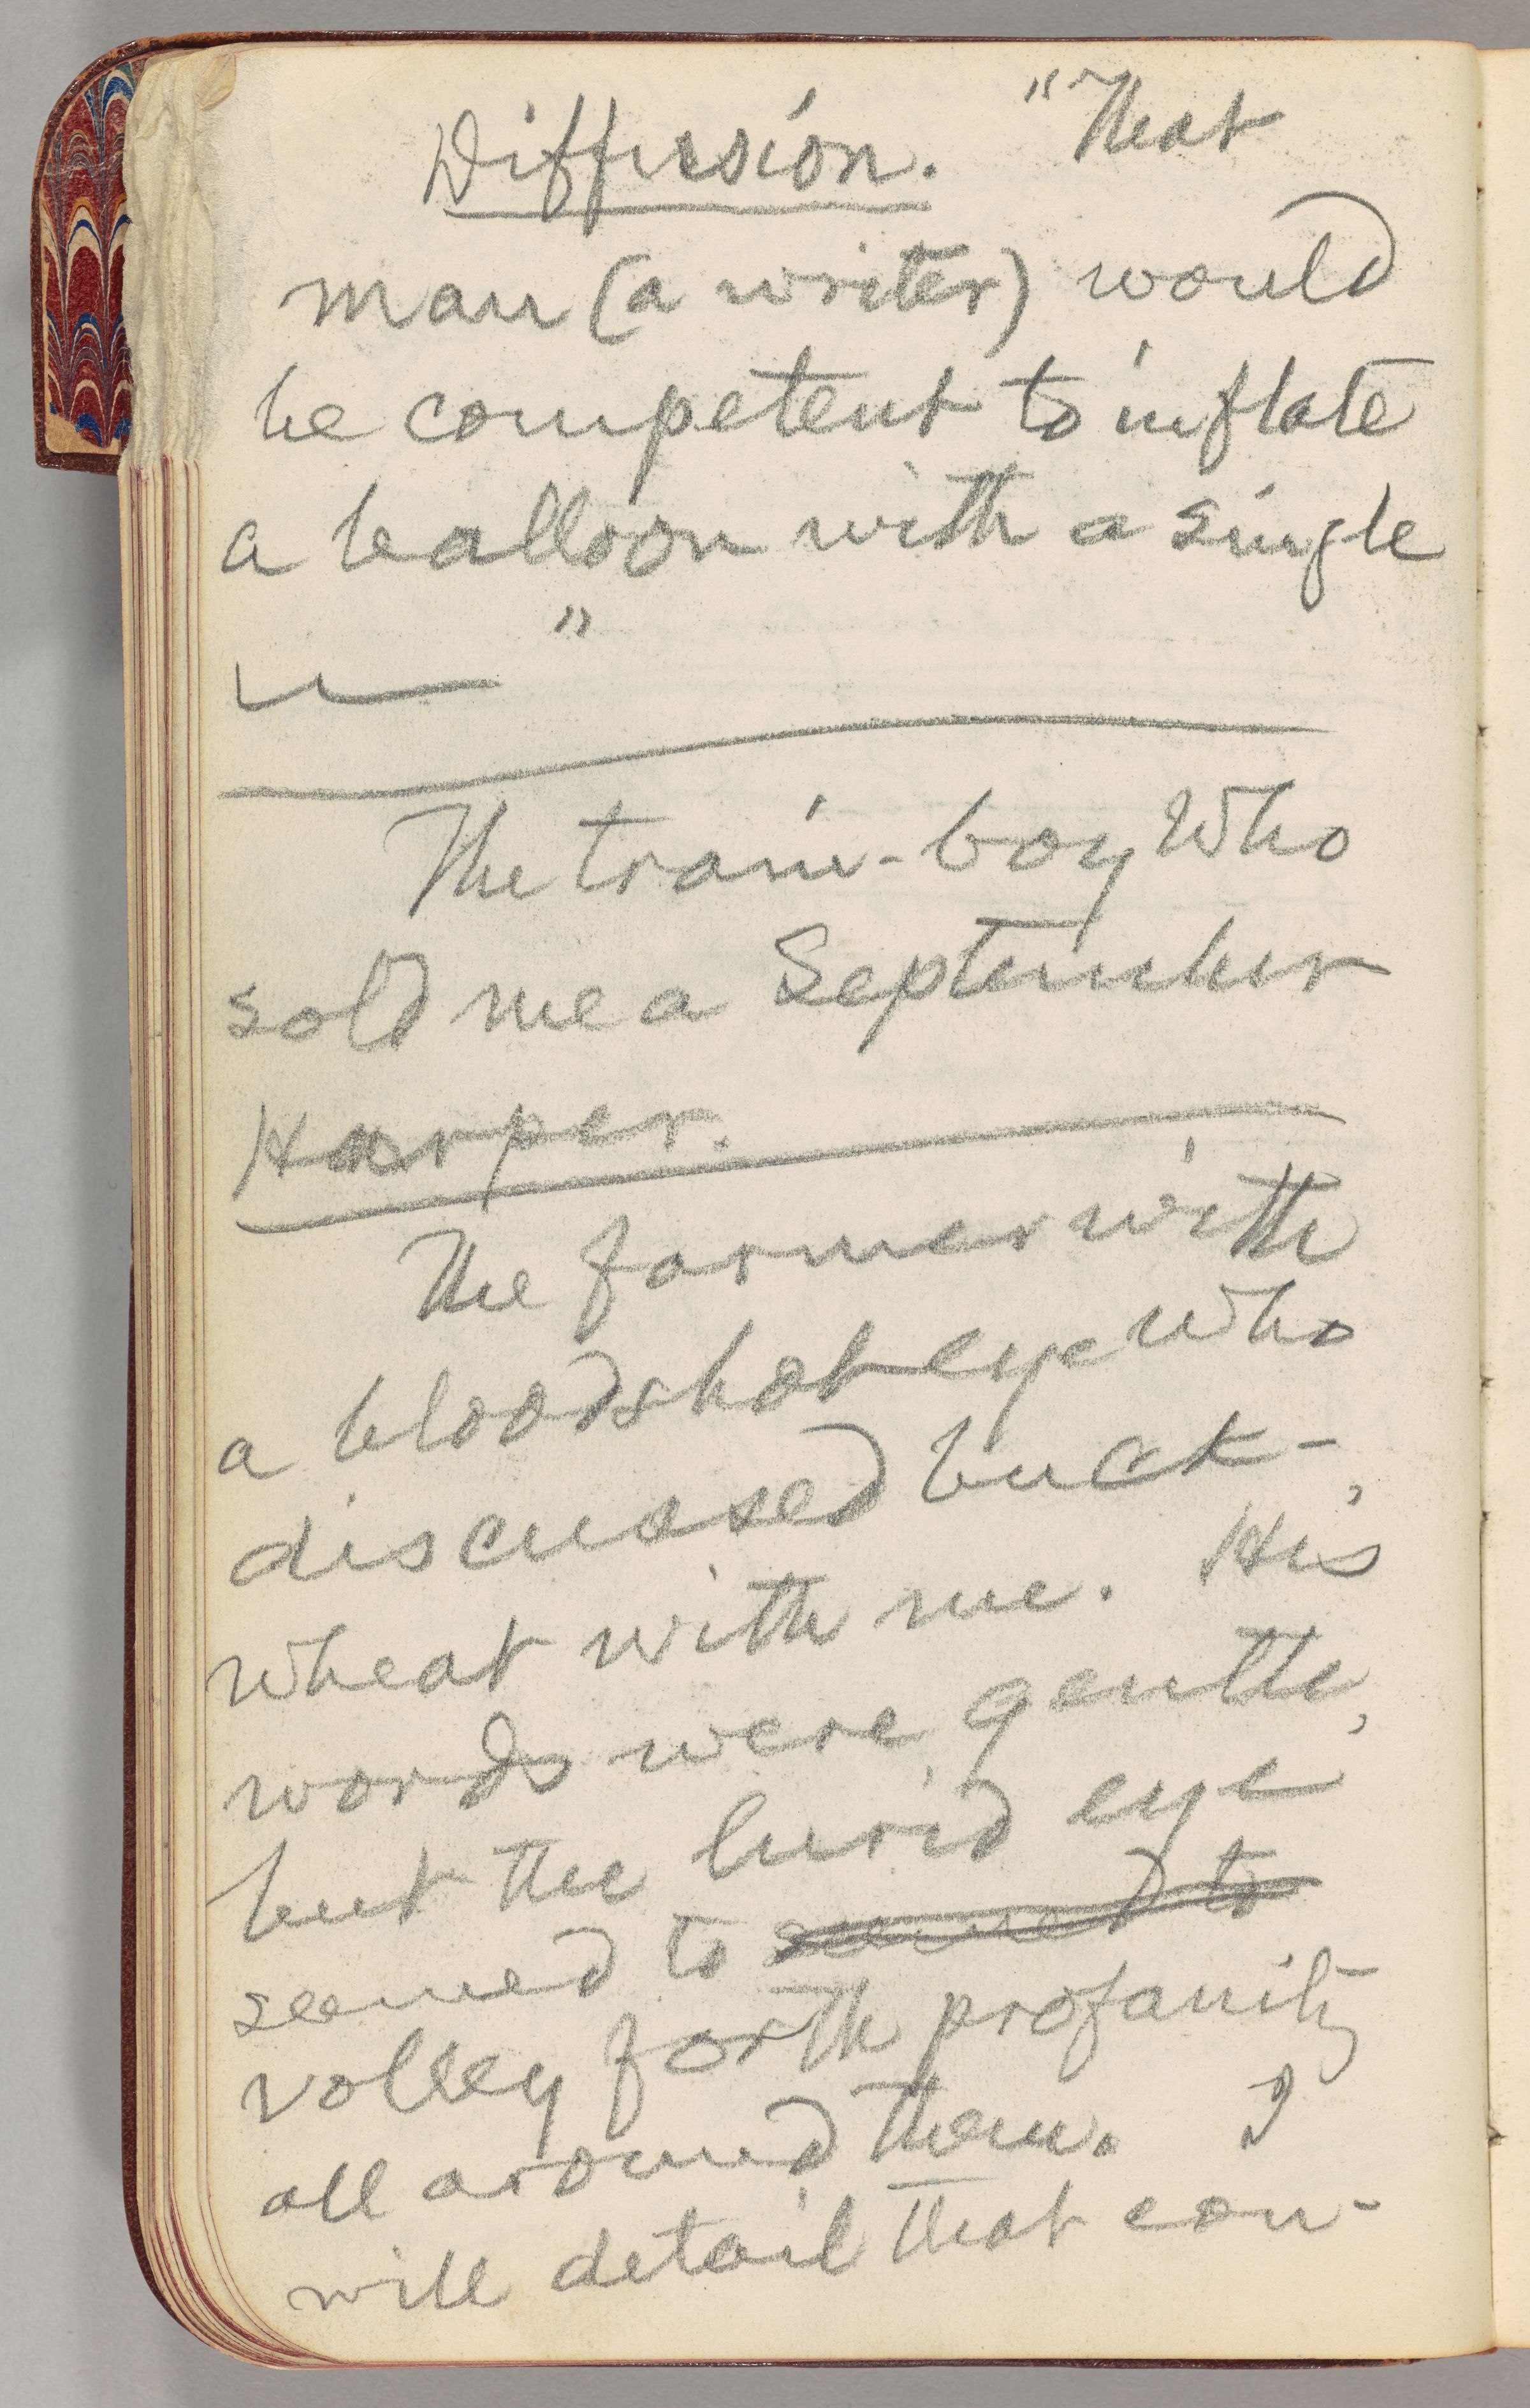 Diffusion. "That
man (a writer) would
be competent to inflate
a balloon with a single
——"
The train-boy who
sold me a September
Harper.
The farmer with
a bloodshot eye who
discussed buck-
wheat with me. His
words were gentle,
but the lurid eye
seemed to seemed to
volley forth profanity
all around them. I
will detail that con-